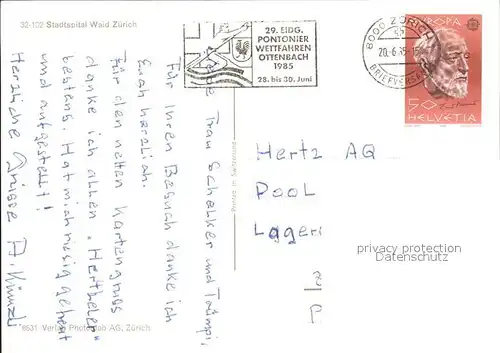 32-102 Stadtspital Waid Zürich
29. EIDG.
PONTONIER
WETTFAHREN
OTTENBACH
1985
28. bis 30. Juni
8000 ZÜRICH
20.-6.85-15
BRIEFVERSAND
EUROPA
50
HELVETIA
Liebe Frau Schelker und Trümpi,
Für Ihren Besuch danke ich
Euch herzlich.
Für den netten Kartengruss
danke ich allen "Hertheler"
bestens. Hat mich riesig gefreut
und aufgestellt!
Herzliche Grüsse A. Künzli
Printed in Switzerland
Hertz AG
Pool
Lageri
privacy protection
Datenschutz
8
P
6631 Verlag Photoglob AG, Zürich